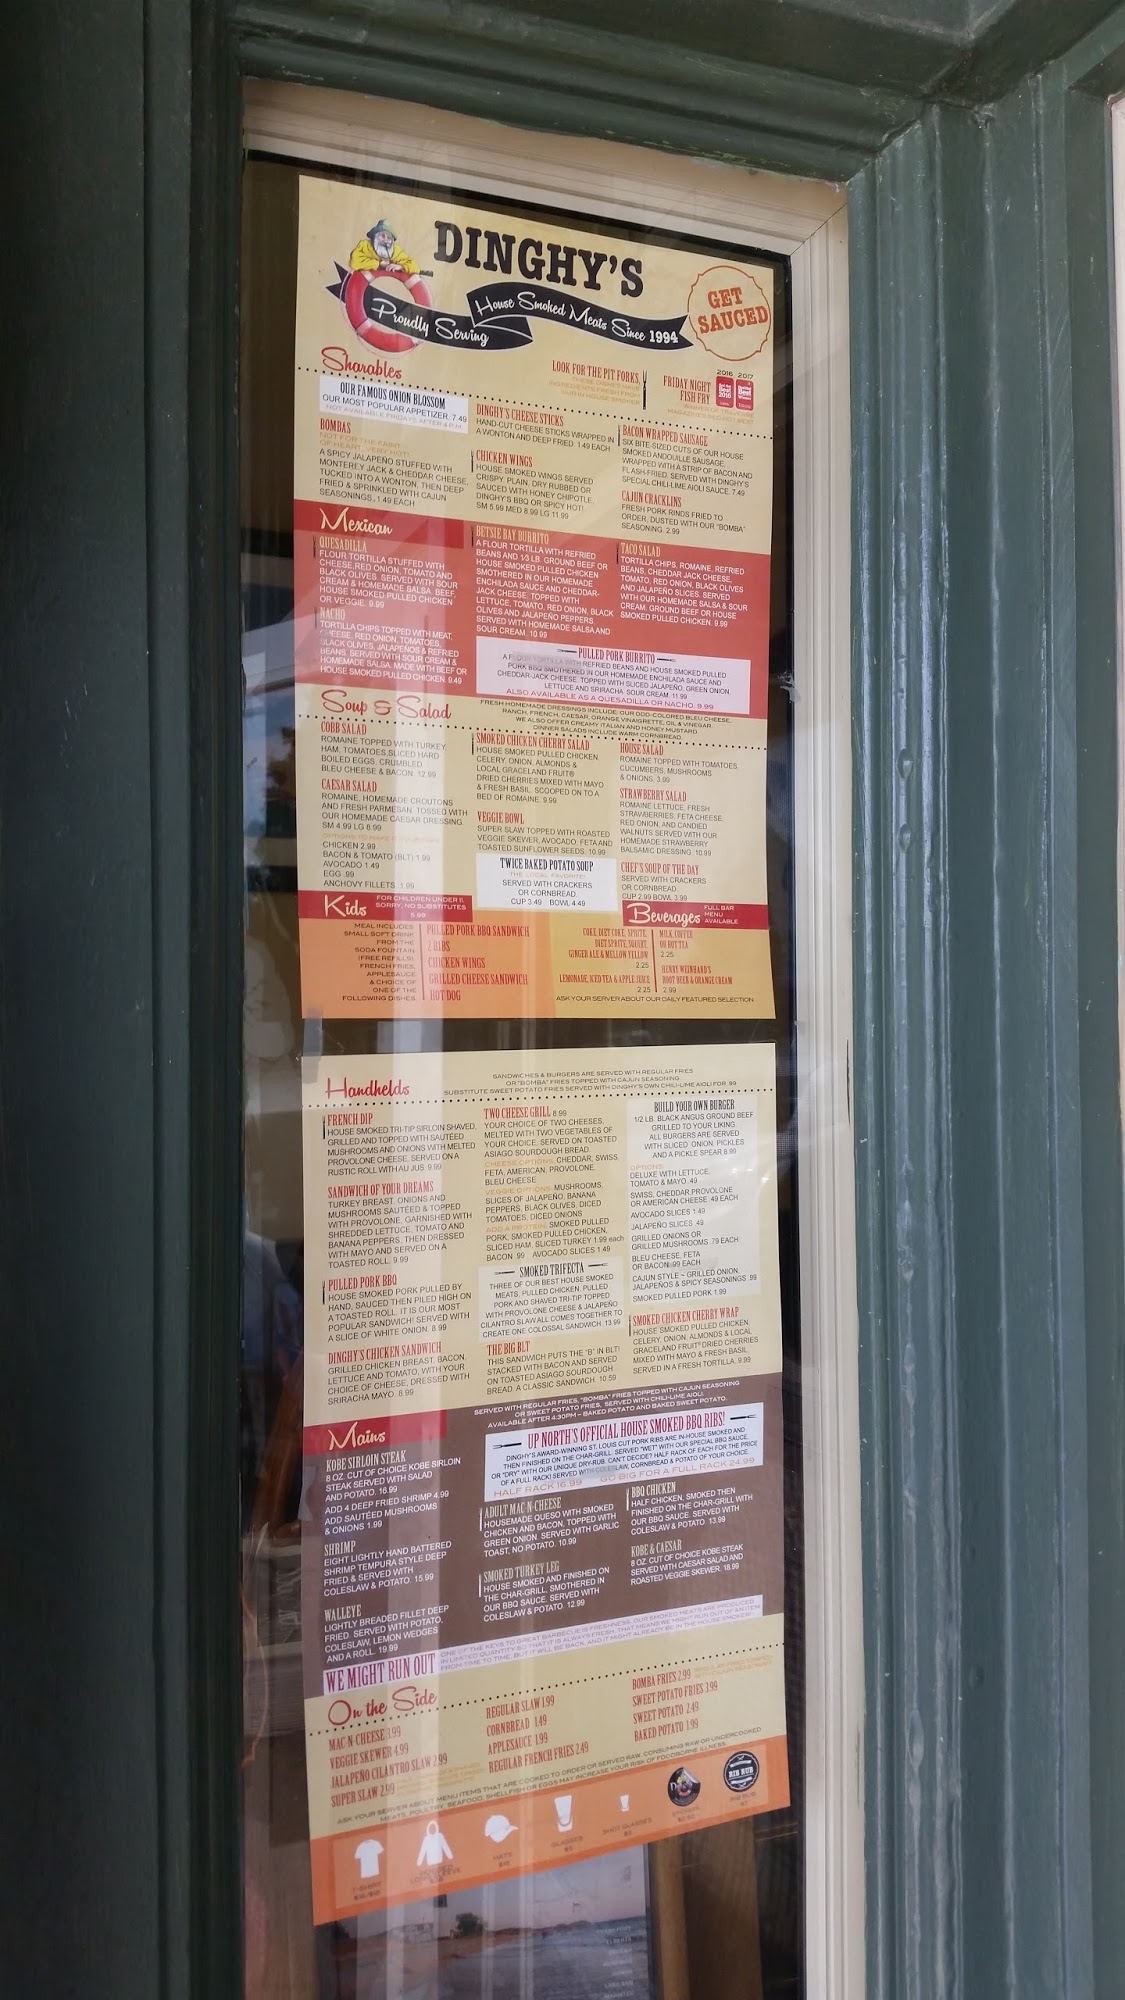 DINGHY'S
Proudly Serving House Smoked Meats Since 1994
GET
SAUCED
Sharables
OUR FAMOUS ONION BLOSSOM
OUR MOST POPULAR APPETIZER. 7.49
NOT AVAILABLE FRIDAYS AFTER 4 P.M.
BOMBAS
NOT FOR THE FAINT
OF HEART...VERY HOT!
A SPICY JALAPEÑO STUFFED WITH
MONTEREY JACK & CHEDDAR CHEESE,
TUCKED INTO A WONTON, THEN DEEP
FRIED & SPRINKLED WITH CAJUN
SEASONINGS. 1.49 EACH
LOOK FOR THE PIT FORKS,
THESE DISHES HAVE
INGREDIENTS FRESH FROM
OUR IN HOUSE SMOKER
DINGHY'S CHEESE STICKS
HAND-CUT CHEESE STICKS WRAPPED IN
A WONTON AND DEEP FRIED. 1.49 EACH
CHICKEN WINGS
HOUSE SMOKED WINGS SERVED
CRISPY, PLAIN, DRY RUBBED OR
SAUCED WITH HONEY CHIPOTLE,
DINGHY'S BBQ OR SPICY HOT!
SM 5.99 MED 8.99 LG 11.99
FRIDAY NIGHT
FISH FRY
2016 2017
BACON WRAPPED SAUSAGE
SIX BITE-SIZED CUTS OF OUR HOUSE
SMOKED ANDOUILLE SAUSAGE,
WRAPPED WITH A STRIP OF BACON AND
FLASH-FRIED. SERVED WITH DINGHY'S
SPECIAL CHILI-LIME AIOLI SAUCE. 7.49
CAJUN CRACKLINS
FRESH PORK RINDS FRIED TO
ORDER, DUSTED WITH OUR "BOMBA"
SEASONING. 2.99
Mexican
QUESADILLA
FLOUR TORTILLA STUFFED WITH
CHEESE, RED ONION, TOMATO AND
BLACK OLIVES. SERVED WITH SOUR
CREAM & HOMEMADE SALSA. BEEF,
HOUSE SMOKED PULLED CHICKEN
OR VEGGIE. 9.99
NACHO
TORTILLA CHIPS TOPPED WITH MEAT,
CHEESE, RED ONION, TOMATOES,
BLACK OLIVES, JALAPEÑOS & REFRIED
BEANS. SERVED WITH SOUR CREAM &
HOMEMADE SALSA. MADE WITH BEEF OR
HOUSE SMOKED PULLED CHICKEN. 9.49
BETSIE BAY BURRITO
A FLOUR TORTILLA WITH REFRIED
BEANS AND 1/3 LB. GROUND BEEF OR
HOUSE SMOKED PULLED CHICKEN
SMOTHERED IN OUR HOMEMADE
ENCHILADA SAUCE AND CHEDDAR-
JACK CHEESE. TOPPED WITH
LETTUCE, TOMATO, RED ONION, BLACK
OLIVES AND JALAPEÑO PEPPERS.
SERVED WITH HOMEMADE SALSA AND
SOUR CREAM. 10.99
TACO SALAD
TORTILLA CHIPS, ROMAINE, REFRIED
BEANS, CHEDDAR JACK CHEESE,
TOMATO, RED ONION, BLACK OLIVES
AND JALAPEÑO SLICES. SERVED
WITH OUR HOMEMADE SALSA & SOUR
CREAM. GROUND BEEF OR HOUSE
SMOKED PULLED CHICKEN. 9.99
PULLED PORK BURRITO
A FLOUR TORTILLA WITH REFRIED BEANS AND HOUSE SMOKED PULLED
PORK BBQ SMOTHERED IN OUR HOMEMADE ENCHILADA SAUCE AND
CHEDDAR-JACK CHEESE. TOPPED WITH SLICED JALAPEÑO, GREEN ONION,
LETTUCE AND SRIRACHA SOUR CREAM. 11.99
ALSO AVAILABLE AS A QUESADILLA OR NACHO. 9.99
Soup & Salad
FRESH HOMEMADE DRESSINGS INCLUDE: OUR ODD-COLORED BLEU CHEESE,
RANCH, FRENCH, CAESAR, ORANGE VINAIGRETTE, OIL & VINEGAR.
WE ALSO OFFER CREAMY ITALIAN AND HONEY MUSTARD.
DINNER SALADS INCLUDE WARM CORNBREAD.
COBB SALAD
ROMAINE TOPPED WITH TURKEY,
HAM, TOMATOES, SLICED HARD
BOILED EGGS, CRUMBLED
BLEU CHEESE & BACON. 12.99
CAESAR SALAD
ROMAINE, HOMEMADE CROUTONS
AND FRESH PARMESAN. TOSSED WITH
OUR HOMEMADE CAESAR DRESSING.
SM 4.99 LG 8.99
CHICKEN 2.99
BACON & TOMATO (BLT) 1.99
AVOCADO 1.49
EGG .99
ANCHOVY FILLETS 1.99
SMOKED CHICKEN CHERRY SALAD
HOUSE SMOKED PULLED CHICKEN,
CELERY, ONION, ALMONDS &
LOCAL GRACELAND FRUIT®
DRIED CHERRIES MIXED WITH MAYO
& FRESH BASIL. SCOOPED ON TO A
BED OF ROMAINE. 9.99
VEGGIE BOWL
SUPER SLAW TOPPED WITH ROASTED
VEGGIE SKEWER, AVOCADO, FETA AND
TOASTED SUNFLOWER SEEDS. 10.99
TWICE BAKED POTATO SOUP
THE LOCAL FAVORITE!
SERVED WITH CRACKERS
OR CORNBREAD.
CUP 3.49 BOWL 4.49
HOUSE SALAD
ROMAINE TOPPED WITH TOMATOES,
CUCUMBERS, MUSHROOMS
& ONIONS. 3.99
STRAWBERRY SALAD
ROMAINE LETTUCE, FRESH
STRAWBERRIES, FETA CHEESE,
RED ONION, AND CANDIED
WALNUTS SERVED WITH OUR
HOMEMADE STRAWBERRY
BALSAMIC DRESSING. 10.99
CHEF'S SOUP OF THE DAY
SERVED WITH CRACKERS
OR CORNBREAD.
CUP 2.99 BOWL 3.99
Kids
FOR CHILDREN UNDER 11.
SORRY, NO SUBSTITUTES
5.99
MEAL INCLUDES
SMALL SOFT DRINK
FROM THE
SODA FOUNTAIN
(FREE REFILLS),
FRENCH FRIES,
APPLESAUCE
& CHOICE OF
ONE OF THE
FOLLOWING DISHES.
PULLED PORK BBQ SANDWICH
2 RIBS
CHICKEN WINGS
GRILLED CHEESE SANDWICH
HOT DOG
Beverages
FULL BAR
MENU
AVAILABLE
COKE, DIET COKE, SPRITE,
DIET SPRITE, SQUIRT,
GINGER ALE & MELLOW YELLOW
2.25
LEMONADE, ICED TEA & APPLE JUICE
2.25
MILK, COFFEE
OR HOT TEA
2.25
HENRY WEINHARD'S
ROOT BEER & ORANGE CREAM
2.99
ASK YOUR SERVER ABOUT OUR DAILY FEATURED SELECTION
Handhelds
SANDWICHES & BURGERS ARE SERVED WITH REGULAR FRIES
OR "BOMBA" FRIES TOPPED WITH CAJUN SEASONING.
SUBSTITUTE SWEET POTATO FRIES SERVED WITH DINGHY'S OWN CHILI-LIME AIOLI FOR .99
FRENCH DIP
HOUSE SMOKED TRI-TIP SIRLOIN SHAVED,
GRILLED AND TOPPED WITH SAUTÉED
MUSHROOMS AND ONIONS WITH MELTED
PROVOLONE CHEESE. SERVED ON A
RUSTIC ROLL WITH AU JUS. 9.99
SANDWICH OF YOUR DREAMS
TURKEY BREAST, ONIONS AND
MUSHROOMS SAUTÉED & TOPPED
WITH PROVOLONE. GARNISHED WITH
SHREDDED LETTUCE, TOMATO AND
BANANA PEPPERS. THEN DRESSED
WITH MAYO AND SERVED ON A
TOASTED ROLL. 9.99
PULLED PORK BBQ
HOUSE SMOKED PORK PULLED BY
HAND, SAUCED THEN PILED HIGH ON
A TOASTED ROLL. IT IS OUR MOST
POPULAR SANDWICH! SERVED WITH
A SLICE OF WHITE ONION. 8.99
DINGHY'S CHICKEN SANDWICH
GRILLED CHICKEN BREAST, BACON,
LETTUCE AND TOMATO, WITH YOUR
CHOICE OF CHEESE, DRESSED WITH
SRIRACHA MAYO. 8.99
TWO CHEESE GRILL 8.99
YOUR CHOICE OF TWO CHEESES,
MELTED WITH TWO VEGETABLES OF
YOUR CHOICE. SERVED ON TOASTED
ASIAGO SOURDOUGH BREAD.
CHEESE OPTIONS: CHEDDAR, SWISS,
FETA, AMERICAN, PROVOLONE,
BLEU CHEESE
VEGGIE OPTIONS: MUSHROOMS,
SLICES OF JALAPEÑO, BANANA
PEPPERS, BLACK OLIVES, DICED
TOMATOES, DICED ONIONS
ADD A PROTEIN: SMOKED PULLED
PORK, SMOKED PULLED CHICKEN,
SLICED HAM, SLICED TURKEY 1.99 each
BACON .99 AVOCADO SLICES 1.49
SMOKED TRIFECTA
THREE OF OUR BEST HOUSE SMOKED
MEATS, PULLED CHICKEN, PULLED
PORK AND SHAVED TRI-TIP TOPPED
WITH PROVOLONE CHEESE & JALAPEÑO
CILANTRO SLAW ALL COMES TOGETHER TO
CREATE ONE COLOSSAL SANDWICH. 13.99
THE BIG BLT
THIS SANDWICH PUTS THE "B" IN BLT!
STACKED WITH BACON AND SERVED
ON TOASTED ASIAGO SOURDOUGH
BREAD. A CLASSIC SANDWICH. 10.59
BUILD YOUR OWN BURGER
1/2 LB. BLACK ANGUS GROUND BEEF
GRILLED TO YOUR LIKING.
ALL BURGERS ARE SERVED
WITH SLICED ONION, PICKLES
AND A PICKLE SPEAR 8.99
OPTIONS:
DELUXE WITH LETTUCE,
TOMATO & MAYO .49
SWISS, CHEDDAR, PROVOLONE
OR AMERICAN CHEESE .49 EACH
AVOCADO SLICES 1.49
JALAPEÑO SLICES .49
GRILLED ONIONS OR
GRILLED MUSHROOMS .79 EACH
BLEU CHEESE, FETA
OR BACON .99 EACH
CAJUN STYLE ~ GRILLED ONION,
JALAPEÑOS & SPICY SEASONINGS .99
SMOKED PULLED PORK 1.99
SMOKED CHICKEN CHERRY WRAP
HOUSE SMOKED PULLED CHICKEN,
CELERY, ONION, ALMONDS & LOCAL
GRACELAND FRUIT® DRIED CHERRIES
MIXED WITH MAYO & FRESH BASIL.
SERVED IN A FRESH TORTILLA. 9.99
Mains
SERVED WITH REGULAR FRIES, "BOMBA" FRIES TOPPED WITH CAJUN SEASONING
OR SWEET POTATO FRIES, SERVED WITH CHILI-LIME AIOLI.
AVAILABLE AFTER 4:30PM – BAKED POTATO AND BAKED SWEET POTATO.
KOBE SIRLOIN STEAK
8 OZ. CUT OF CHOICE KOBE SIRLOIN
STEAK SERVED WITH SALAD
AND POTATO. 16.99
ADD 4 DEEP FRIED SHRIMP 4.99
ADD SAUTÉED MUSHROOMS
& ONIONS 1.99
SHRIMP
EIGHT LIGHTLY HAND BATTERED
SHRIMP TEMPURA STYLE DEEP
FRIED & SERVED WITH
COLESLAW & POTATO. 15.99
WALLEYE
LIGHTLY BREADED FILLET DEEP
FRIED. SERVED WITH POTATO,
COLESLAW, LEMON WEDGES
AND A ROLL. 19.99
UP NORTH'S OFFICIAL HOUSE SMOKED BBQ RIBS!
DINGHY'S AWARD-WINNING ST. LOUIS CUT PORK RIBS ARE IN-HOUSE SMOKED AND
THEN FINISHED ON THE CHAR-GRILL. SERVED "WET" WITH OUR SPECIAL BBQ SAUCE,
OR "DRY" WITH OUR UNIQUE DRY-RUB. CAN'T DECIDE? HALF RACK OF EACH FOR THE PRICE
OF A FULL RACK! SERVED WITH COLESLAW, CORNBREAD & POTATO OF YOUR CHOICE.
HALF RACK 16.99 GO BIG FOR A FULL RACK 24.99
ADULT MAC N-CHEESE
HOUSEMADE QUESO WITH SMOKED
CHICKEN AND BACON, TOPPED WITH
GREEN ONION. SERVED WITH GARLIC
TOAST, NO POTATO. 10.99
SMOKED TURKEY LEG
HOUSE SMOKED AND FINISHED ON
THE CHAR-GRILL, SMOTHERED IN
OUR BBQ SAUCE. SERVED WITH
COLESLAW & POTATO. 12.99
BBQ CHICKEN
HALF CHICKEN, SMOKED THEN
FINISHED ON THE CHAR-GRILL WITH
OUR BBQ SAUCE. SERVED WITH
COLESLAW & POTATO. 13.99
KOBE & CAESAR
8 OZ. CUT OF CHOICE KOBE STEAK
SERVED WITH CAESAR SALAD AND
ROASTED VEGGIE SKEWER. 18.99
WE MIGHT RUN OUT
ONE OF THE KEYS TO GREAT BARBECUE IS FRESHNESS. OUR SMOKED MEATS ARE PRODUCED
IN LIMITED QUANTITY SO THAT IT IS ALWAYS FRESH. THAT MEANS WE MIGHT RUN OUT OF AN ITEM
FROM TIME TO TIME, BUT IT WILL BE BACK, AND IT MIGHT ALREADY BE IN THE HOUSE SMOKER!
On the Side
MAC N-CHEESE 3.99
VEGGIE SKEWER 4.99
JALAPEÑO CILANTRO SLAW 2.99
SUPER SLAW 2.99
REGULAR SLAW 1.99
CORNBREAD 1.49
APPLESAUCE 1.99
REGULAR FRENCH FRIES 2.49
BOMBA FRIES 2.99
SWEET POTATO FRIES 3.99
SWEET POTATO 2.49
BAKED POTATO 1.99
ASK YOUR SERVER ABOUT MENU ITEMS THAT ARE COOKED TO ORDER OR SERVED RAW. CONSUMING RAW OR UNDERCOOKED
MEATS, POULTRY, SEAFOOD, SHELLFISH OR EGGS MAY INCREASE YOUR RISK OF FOODBORNE ILLNESS.
T-SHIRT
HATS
GLASSES
SHOT GLASSES
STICKERS
RIB RUB
RIB RUB